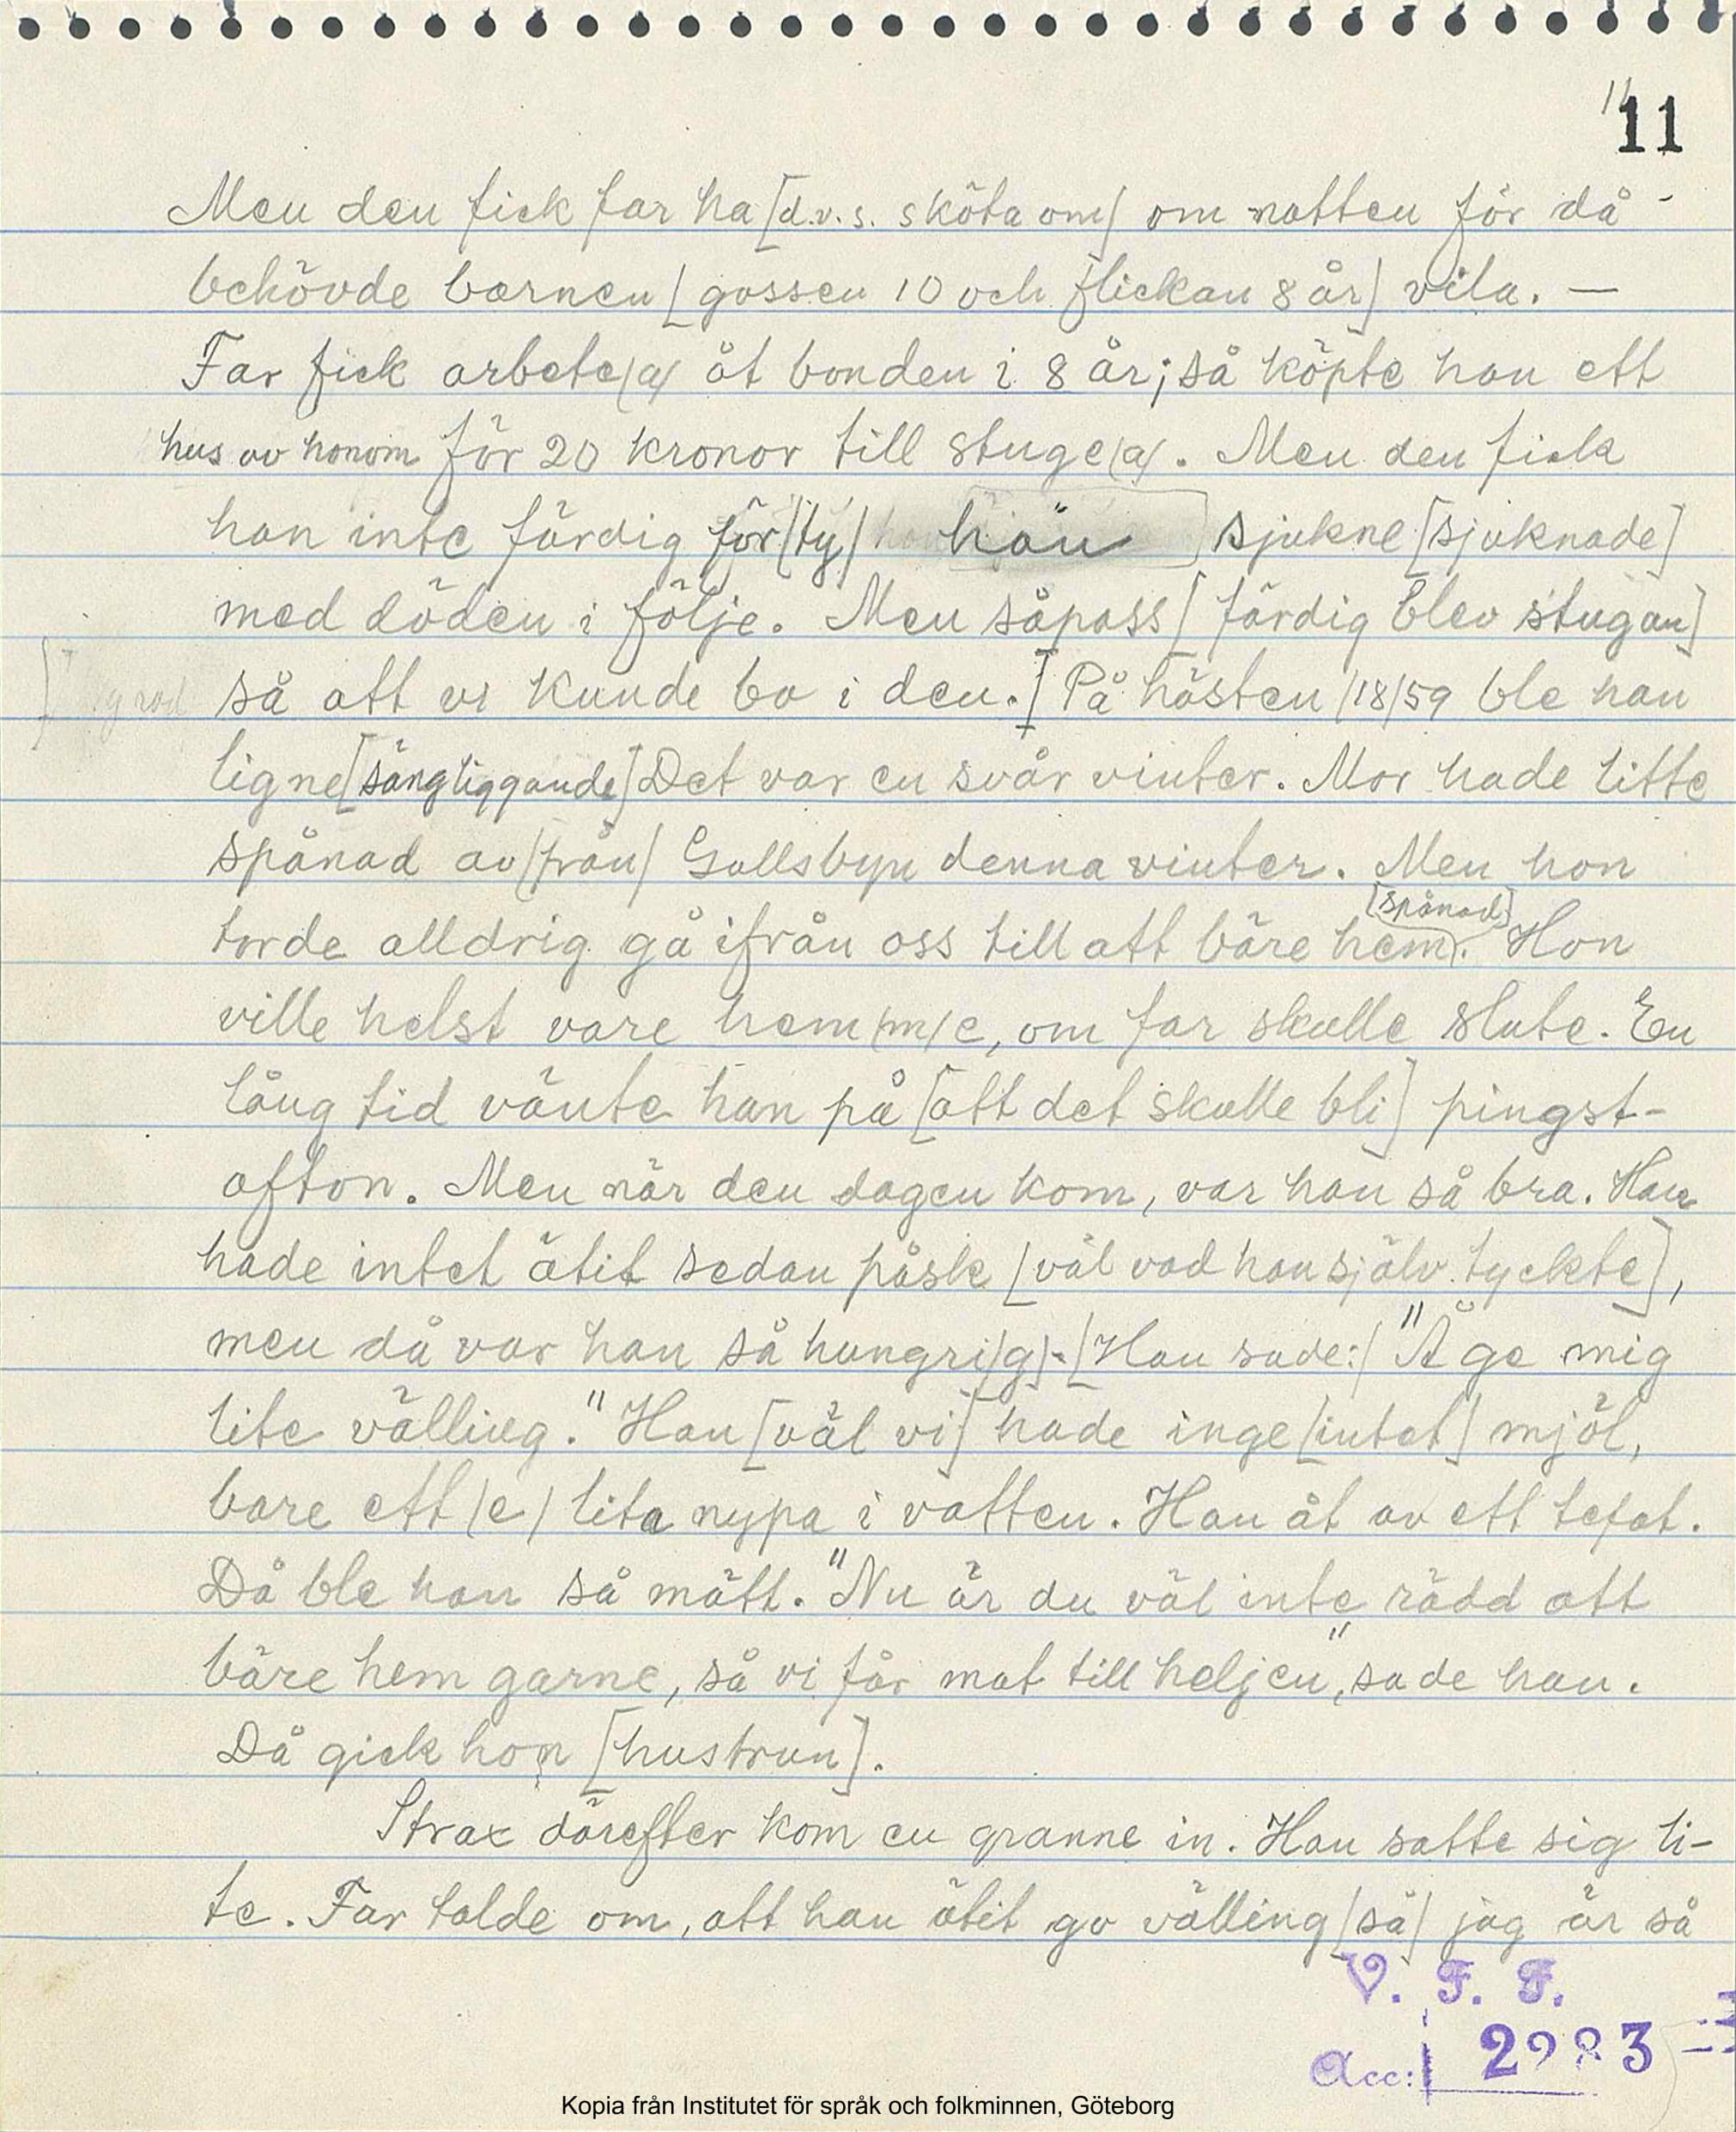 11
11
Men den fick far ha [d.v.s. sköta om] om natten för då
behövde barnen [gossen 10 och flickan 8 år] vila. —
Far fick arbete(a) åt bonden i 8 år; så köpte han ett
hus av honom för 20 kronor till stuge(a). Men den fick
han inte färdig för [ty] han sjukne [sjuknade]
med döden i följe. Men såpass [färdig blev stugan]
så att vi kunde bo i den.] På hösten /18/59 ble han
ligne [sängliggande] Det var en svår vinter. Mor hade litte
spånad av [från] Gullsbyn denna vinter. Men hon
[spånad]
torde alldrig gå ifrån oss till att bäre hem. Hon
ville helst vare hem/m/e, om far skulle slute. En
lång tid vänte han på [att det skulle bli] pingst-
afton. Men när den dagen kom, var han så bra. Han
hade intet ätit sedan påsk [väl vad han själv tyckte],
men då var han så hungri[g]. [Han sade:] "Å ge mig
lite välling." Han [väl vi] hade inge [intet] mjöl,
bare ett /e/ lita nypa i vatten. Han åt av ett tefat.
Då ble han så mätt. "Nu är du väl inte rädd att
bäre hem garne, så vi får mat till heljen", sade han.
Då gick hon [hustrun].
Strax därefter kom en granne in. Han satte sig li-
te. Far talde om, att han ätit go välling [så] jag är så
V. F. F.
Acc: 2983
Kopia från Institutet för språk och folkminnen, Göteborg